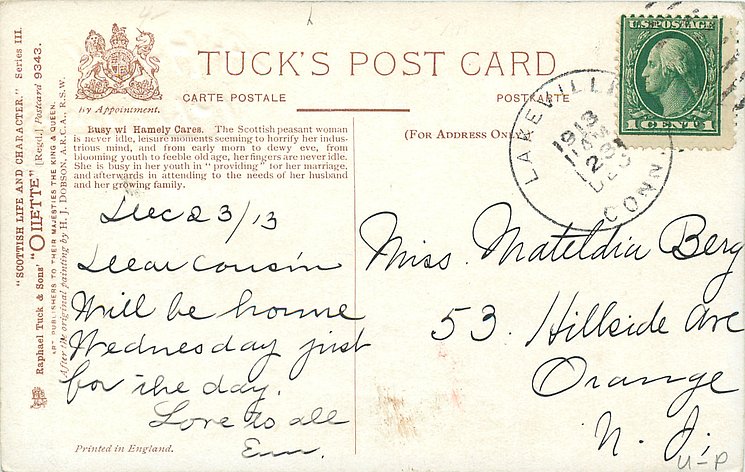 "SCOTTISH LIFE AND CHARACTER." Series III.
Raphael Tuck & Sons' "OILETTE" (Regd.) Postcard 9343.
ART PUBLISHERS TO THEIR MAJESTIES THE KING & QUEEN.
After the original painting by H. J. DOBSON, A.R.C.A., R.S.W.
By Appointment.
TUCK'S POST CARD
CARTE POSTALE
POSTKARTE
Busy wi Hamely Cares. The Scottish peasant woman
is never idle, leisure moments seeming to horrify her indus-
trious mind, and from early morn to dewy eve, from
blooming youth to feeble old age, her fingers are never idle.
She is busy in her youth in "providing" for her marriage,
and afterwards in attending to the needs of her husband
and her growing family.
(FOR ADDRESS ONLY
U.S. POSTAGE
1 CENT 1
LAKEVILLE
CONN.
1913
DEC
Dec 23/13
Dear Cousin
Will be home
Wednesday just
for the day.
Love to all
Em.
Miss. Mateldia Berg
53. Hillside Ave
Orange
N. J.
U-P
Printed in England.